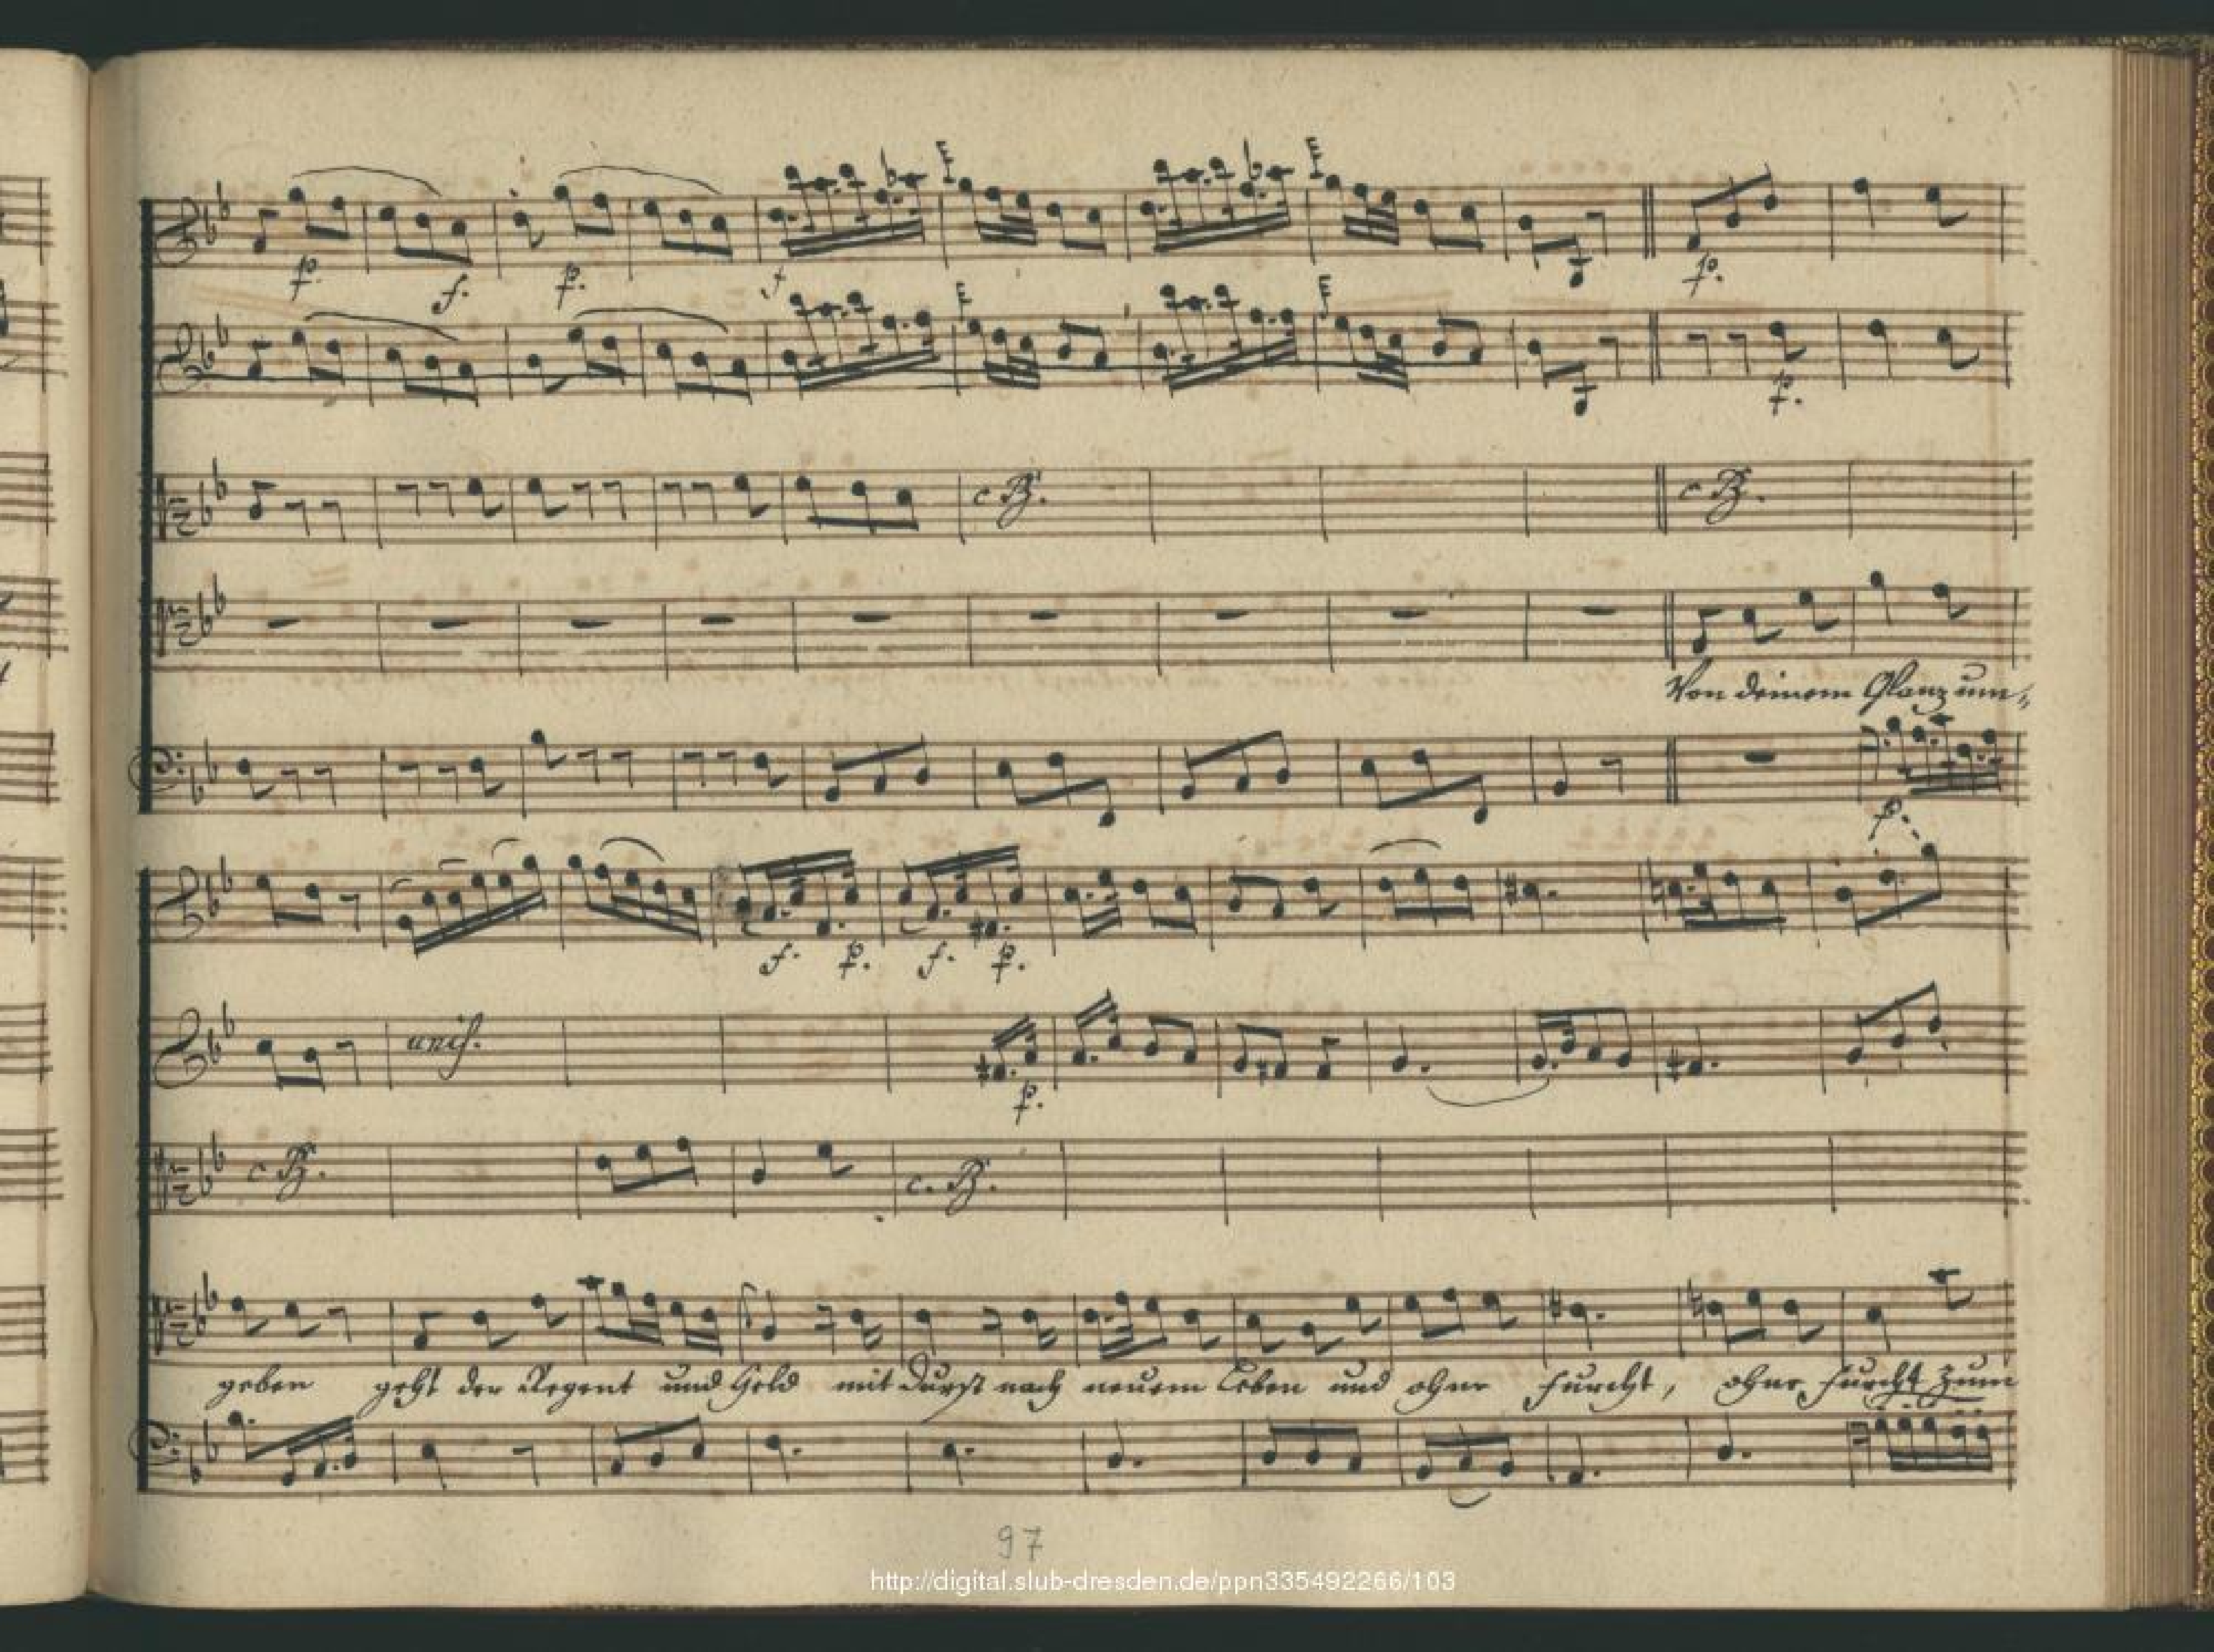 p. f. p. f
p.
c B. c B.
Von deinem Glanz um-
p.
f. p. f. p.
unis.
p.
c B. c. B.
geben geht der Regent und Held mit Durst nach neuem Leben und ohne Furcht, ohne Furcht zum
97
http://digital.slub-dresden.de/ppn335492266/103